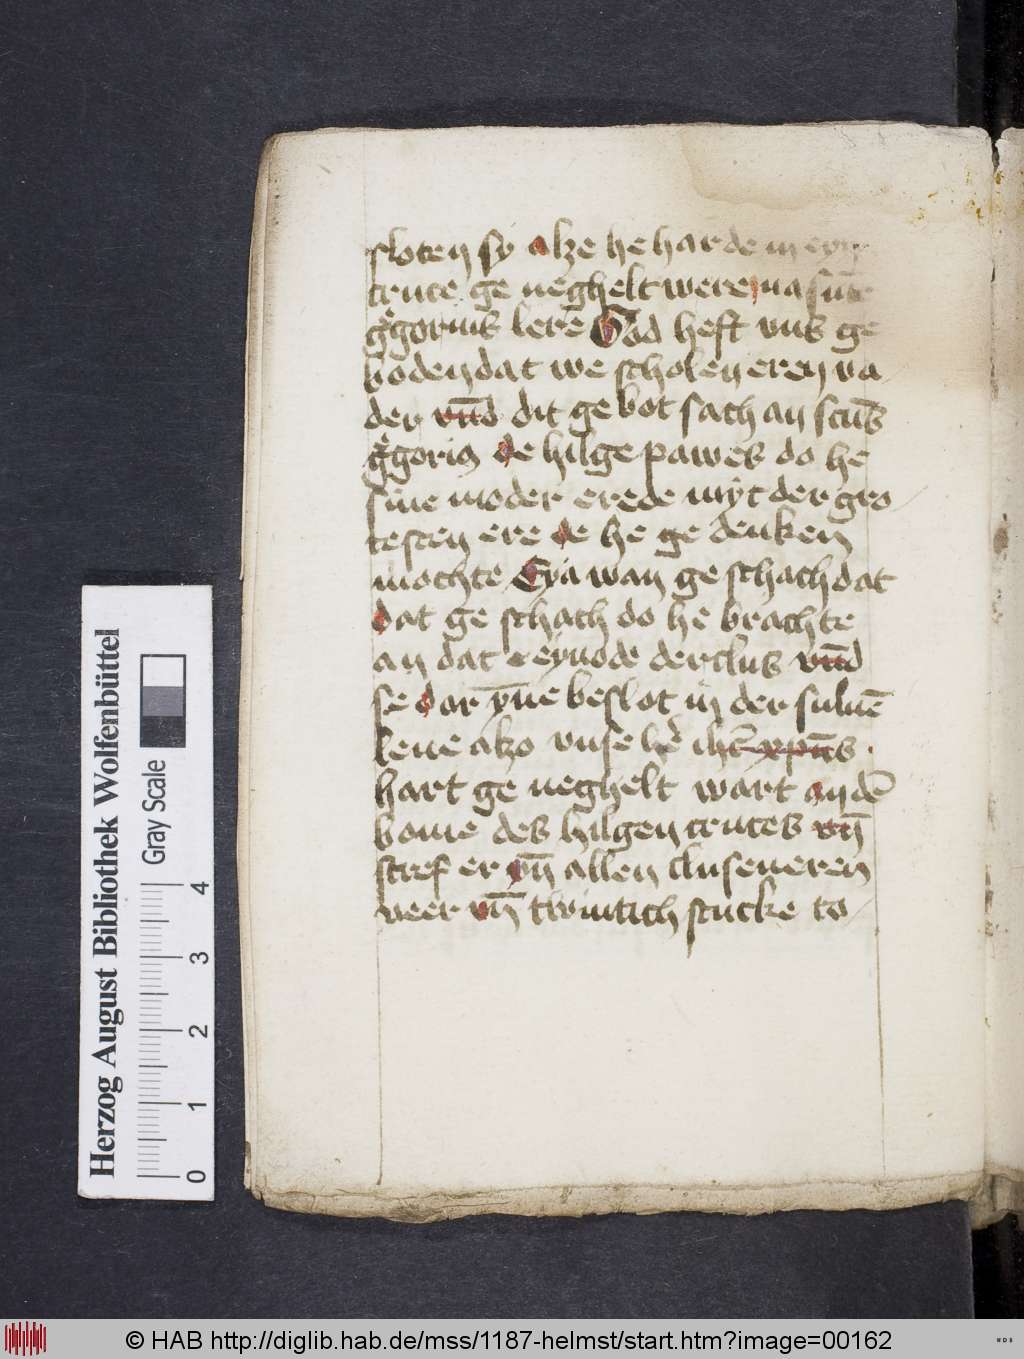 sloten sy alze he harde in eyn
cruce ge neghelt were na sunte
gͥgorius lere God heft vns ge
boden dat we scholen eren va
der vn̄d dit ge bot sach an sctūs
gͥgorius de hilge pawes do he
sine moder erede myt der gro
testen ere de he ge denken
mochte Eya wan ge schach dat
dat ge schach do he brachte
an dat eynode der clus vn̄d
se dar ȳne beslot in der suluē
leue alzo vnse he ihc xpūs
hart ge neghelt wart an dē
bome des hilgen cruces vn̄
scref er vn̄ allen cluseneren
veer vn̄ twintich stucke to
Herzog August Bibliothek Wolfenbüttel
Gray Scale
0 1 2 3 4
© HAB http://diglib.hab.de/mss/1187-helmst/start.htm?image=00162